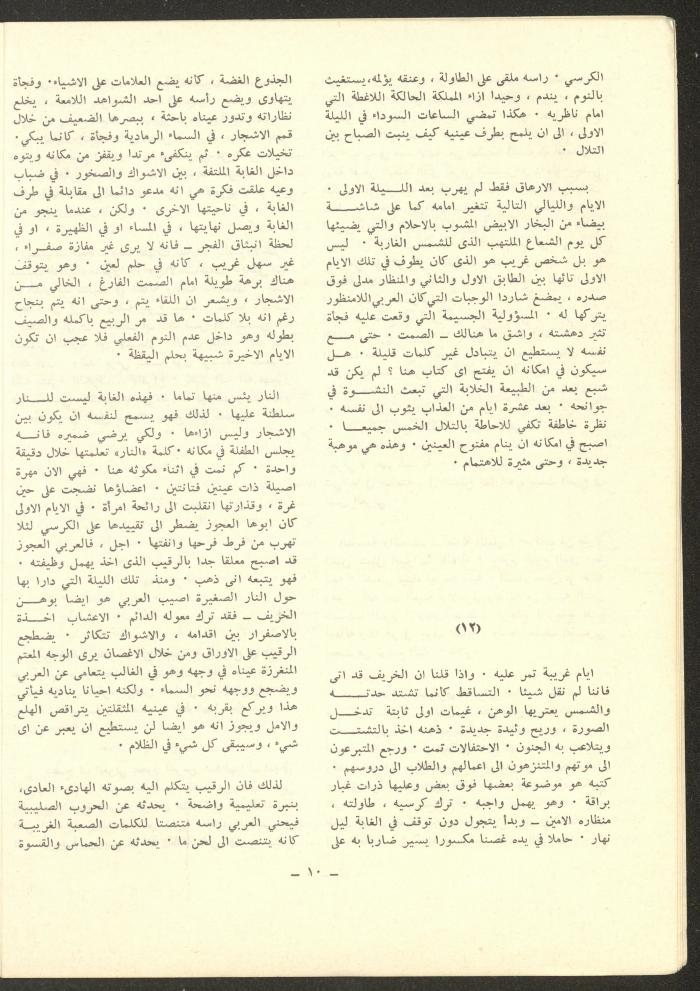 الكرسي ٠ راسه ملقى على الطاولة ، وعنقه يؤلمه،يستغيث
بالنوم ، يندم ، وحيدا ازاء المملكة الحالكة اللاغطة التي
امام ناظريه ٠ هكذا تمضي الساعات السوداء في الليلة
الاولى ، الى ان يلمح بطرف عينيه كيف ينبت الصباح بين
التلال ٠
بسبب الارهاق فقط لم يهرب بعد اللـــيلة الاولى ٠
الايام والليالي التالية تتغير امامه كما على شاشـــة
بيضاء من البخار الابيض المشوب بالاحلام والتي يضيئها
كل يوم الشعاع الملتهب الذى للشمس الغاربة ٠ ليس
هو بل شخص غريب هو الذى كان يطوف في تلك الايام
الاولى تائها بين الطابق الاول والثاني والمنظار مدلى فوق
صدره ، يمضغ شاردا الوجبات التي كان العربي اللامنظور
يتركها له ٠ المسؤولية الجسيمة التي وقعت عليه فجأة
تثير دهشته ، واشق ما هنالك ــ الصمت ٠ حتى مـــع
نفسه لا يستطيع ان يتبادل غير كلمات قليلة ٠ هــل
سيكون في امكانه ان يفتح اى كتاب هنا ؟ لم يكن قد
شبع بعد من الطبيعة الخلابة التي تبعث النشـــوة في
جوانحه ٠ بعد عشرة ايام من العذاب يثوب الى نفسه ٠
نظرة خاطفة تكفي للاحاطة بالتلال الخمس جميعـــا ٠
اصبح في امكانه ان ينام مفتوح العينين ٠ وهذه هي موهبة
جديدة ، وحتى مثيرة للاهتمام ٠
(١٢)
ايام غريبة تمر عليه ٠ واذا قلنا ان الخريف قد اتى
فاننا لم نقل شيئا ٠ التساقط كانما تشتد حدتـــــه
والشمس يعتريها الوهن ، غيمات اولى ثابتة تدخـــل
الصورة ، وريح وئيدة جديدة ٠ ذهنه اخذ بالتشتـــت
ويتلاعب به الجنون ٠ الاحتفالات تمت ٠ ورجع المتبرعون
الى موتهم والمتنزهون الى اعمالهم والطلاب الى دروسهم ٠
كتبه هو موضوعة بعضها فوق بعض وعليها ذرات غبار
براقة ٠ وهو يهمل واجبه ٠ ترك كرسيه ، طاولته ،
منظاره الامين ــ وبدأ يتجول دون توقف في الغابة ليل
نهار ٠ حاملا في يده غصنا مكسورا يسير ضاربا به على
الجذوع الغضة ، كانه يضع العلامات على الاشياء٠ وفجأة
يتهاوى ويضع رأسه على احد الشواهد اللامعة ، يخلع
نظاراته وتدور عيناه باحثة ، ببصرها الضعيف من خلال
قمم الاشجار ، في السماء الرمادية وفجأة ، كانما يبكي٠
تخيلات عكره ٠ ثم ينكفىء مرتدا ويقفز من مكانه ويتوه
داخل الغابة الملتفة ، بين الاشواك والصخور ٠ في ضباب
وعيه علقت فكرة هي انه مدعو دائما الى مقابلة في طرف
الغابة ، في ناحيتها الاخرى ٠ ولكن ، عندما ينجو من
الغابة ويصل نهايتها ، في المساء او في الظهيرة ، او في
لحظة انبثاق الفجر ــ فانه لا يرى غير مفازة صفـــراء ،
غير سهل غريب ، كانه في حلم لعين ٠ وهو يتوقف
هناك برهة طويلة امام الصمت الفارغ ، الخالي مـــن
الاشجار ، ويشعر ان اللقاء يتم ، وحتى انه يتم بنجاح
رغم انه بلا كلمات ٠ ها قد مر الربيع باكمله والصيف
بطوله وهو داخل عدم النوم الفعلي فلا عجب ان تكون
الايام الاخيرة شبيهة بحلم اليقظة ٠
النار يئس منها تماما ٠ فهذه الغابة ليست للـــنار
سلطنة عليها ٠ لذلك فهو يسمح لنفسه ان يكون بين
الاشجار وليس ازاءها ٠ ولكي يرضي ضميره فانـــه
يجلس الطفلة في مكانه ٠ كلمة «النار» تعلمتها خلال دقيقة
واحدة ٠ كم نمت في اثناء مكوثه هنا ٠ فهي الان مهرة
اصيلة ذات عينين فتانتين ٠ اعضاؤها نضجت على حين
غرة ، وقذارتها انقلبت الى رائحة امرأة ٠ في الايام الاولى
كان ابوها العجوز يضطر الى تقييدها على الكرسي لئلا
تهرب من فرط فرحها وانفتها ٠ اجل ، فالعربي العجوز
قد اصبح معلقا جدا بالرقيب الذى اخذ يهمل وظيفته ٠
فهو يتبعه انى ذهب ٠ ومنذ تلك الليلة التي دارا بها
حول النار الصغيرة اصيب العربي هو ايضا بوهــن
الخريف ــ فقد ترك معوله الدائم ٠ الاعشاب اخـــذة
بالاصفرار بين اقدامه ، والاشواك تتكاثر ٠ يضطجع
الرقيب على الاوراق ومن خلال الاغصان يرى الوجه المعتم
المنغرزة عيناه في وجهه وهو في الغالب يتعامى عن العربي
ويضجع ووجهه نحو السماء ٠ ولكنه احيانا يناديه فيأتي
هذا ويركع بقربه ٠ في عينيه المثقلتين يتراقص الهلع
والامل ويجوز انه هو ايضا لن يستطيع ان يعبر عن اى
شيء ، وسيبقى كل شيء في الظلام ٠
لذلك فان الرقيب يتكلم اليه بصوته الهادىء العادى،
بنبرة تعليمية واضحة ٠ يحدثه عن الحروب الصليبية
فيحني العربي راسه متنصتا للكلمات الصعبة الغريبـــة
كانه يتنصت الى لحن ما ٠ يحدثه عن الحماس والقسوة
ــ ١٠ ــ